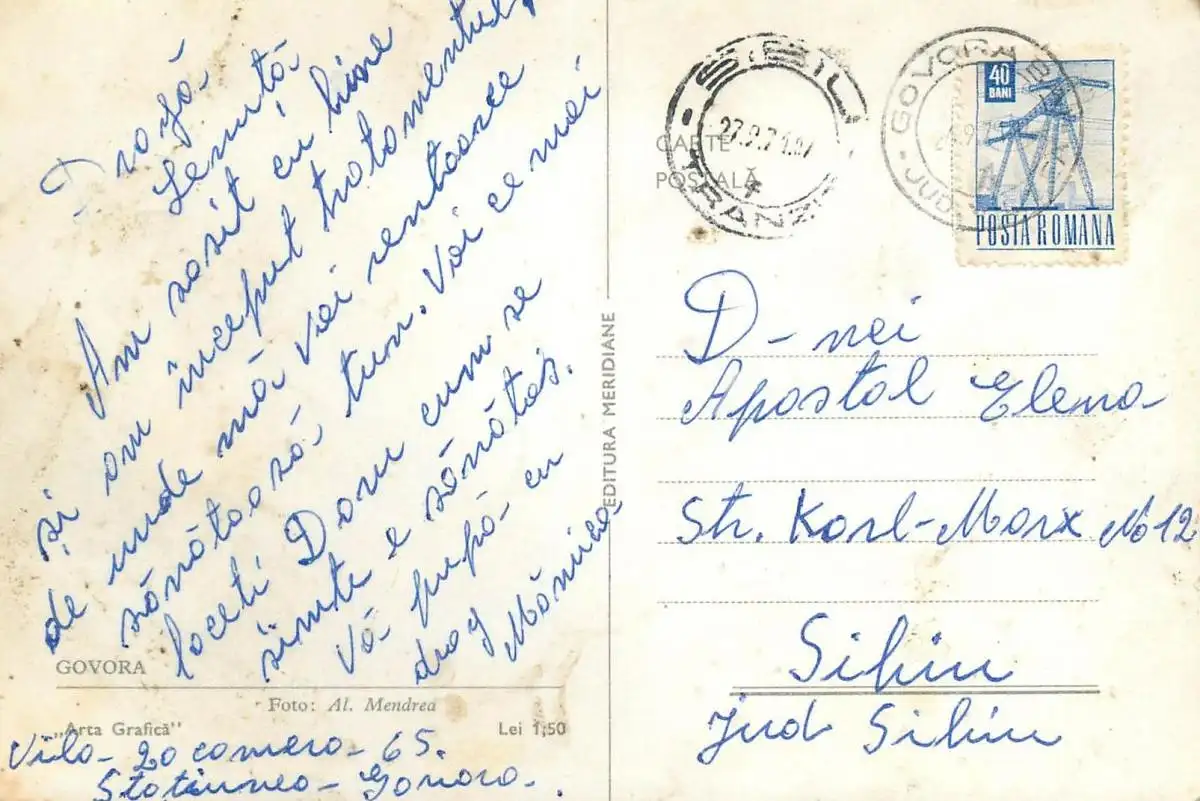 Dragă
Lenuță
Am sosit cu bine
și am început tratamentul,
de unde mă voi rentoarce
sănătoasă tun. Voi ce mai
faceti Doru cum se
simte e sănătos.
Vă pupă cu
drag
Mănica
GOVORA
Foto: Al. Mendrea
„Arta Grafică”
Lei 1,50
Vila 20 camera 65.
Statiunea Govora.
EDITURA MERIDIANE
CARTE
POȘTALĂ
SIBIU
27.9.7
TRANZIT
GOVORA BĂI
JUD
40
BANI
POSTA ROMANA
D-nei
Apostol Elena
Str. Karl-Marx No 12
Sibiu
Jud Sibiu